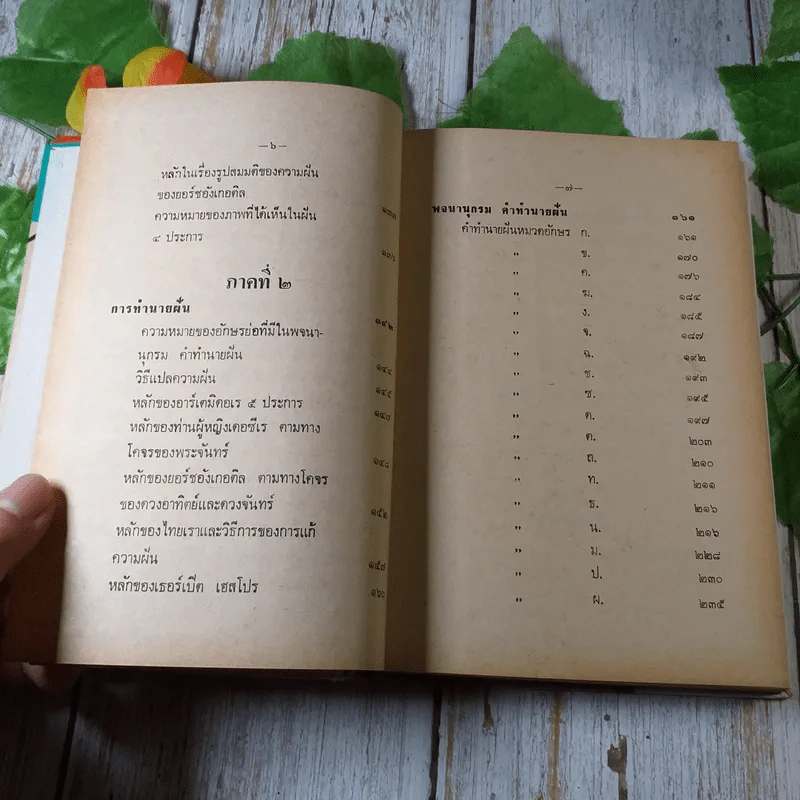 —๖—
หลักในเรื่องรูปสมมติของความฝัน
ของยอร์ซอังเกอติล ๑๓๓
ความหมายของภาพที่ได้เห็นในฝัน
๔ ประการ ๑๓๖
ภาคที่ ๒
การทำนายฝัน ๑๔๒
ความหมายของอักษรย่อที่มีในพจนา-
นุกรม คำทำนายฝัน ๑๔๔
วิธีแปลความฝัน ๑๔๕
หลักของอาร์เตมิดอเร ๕ ประการ ๑๔๗
หลักของท่านผู้หญิงเดอซีเร ตามทาง
โคจรของพระจันทร์ ๑๔๘
หลักของยอร์ซอังเกอติล ตามทางโคจร
ของดวงอาทิตย์และดวงจันทร์ ๑๕๒
หลักของไทยเราและวิธีการของการแก้
ความฝัน ๑๕๗
หลักของเธอร์เบิต เฮสโปร ๑๖๐
—๗—
พจนานุกรม คำทำนายฝัน ๑๖๑
คำทำนายฝันหมวดอักษร ก. ๑๖๑
" ข. ๑๗๐
" ค. ๑๗๖
" ฆ. ๑๘๔
" ง. ๑๘๕
" จ. ๑๘๗
" ฉ. ๑๙๒
" ช. ๑๙๓
" ซ. ๑๙๕
" ด. ๑๙๗
" ต. ๒๐๓
" ถ. ๒๑๐
" ท. ๒๑๑
" ธ. ๒๑๖
" น. ๒๑๖
" ม. ๒๒๘
" ป. ๒๓๐
" ผ. ๒๓๕